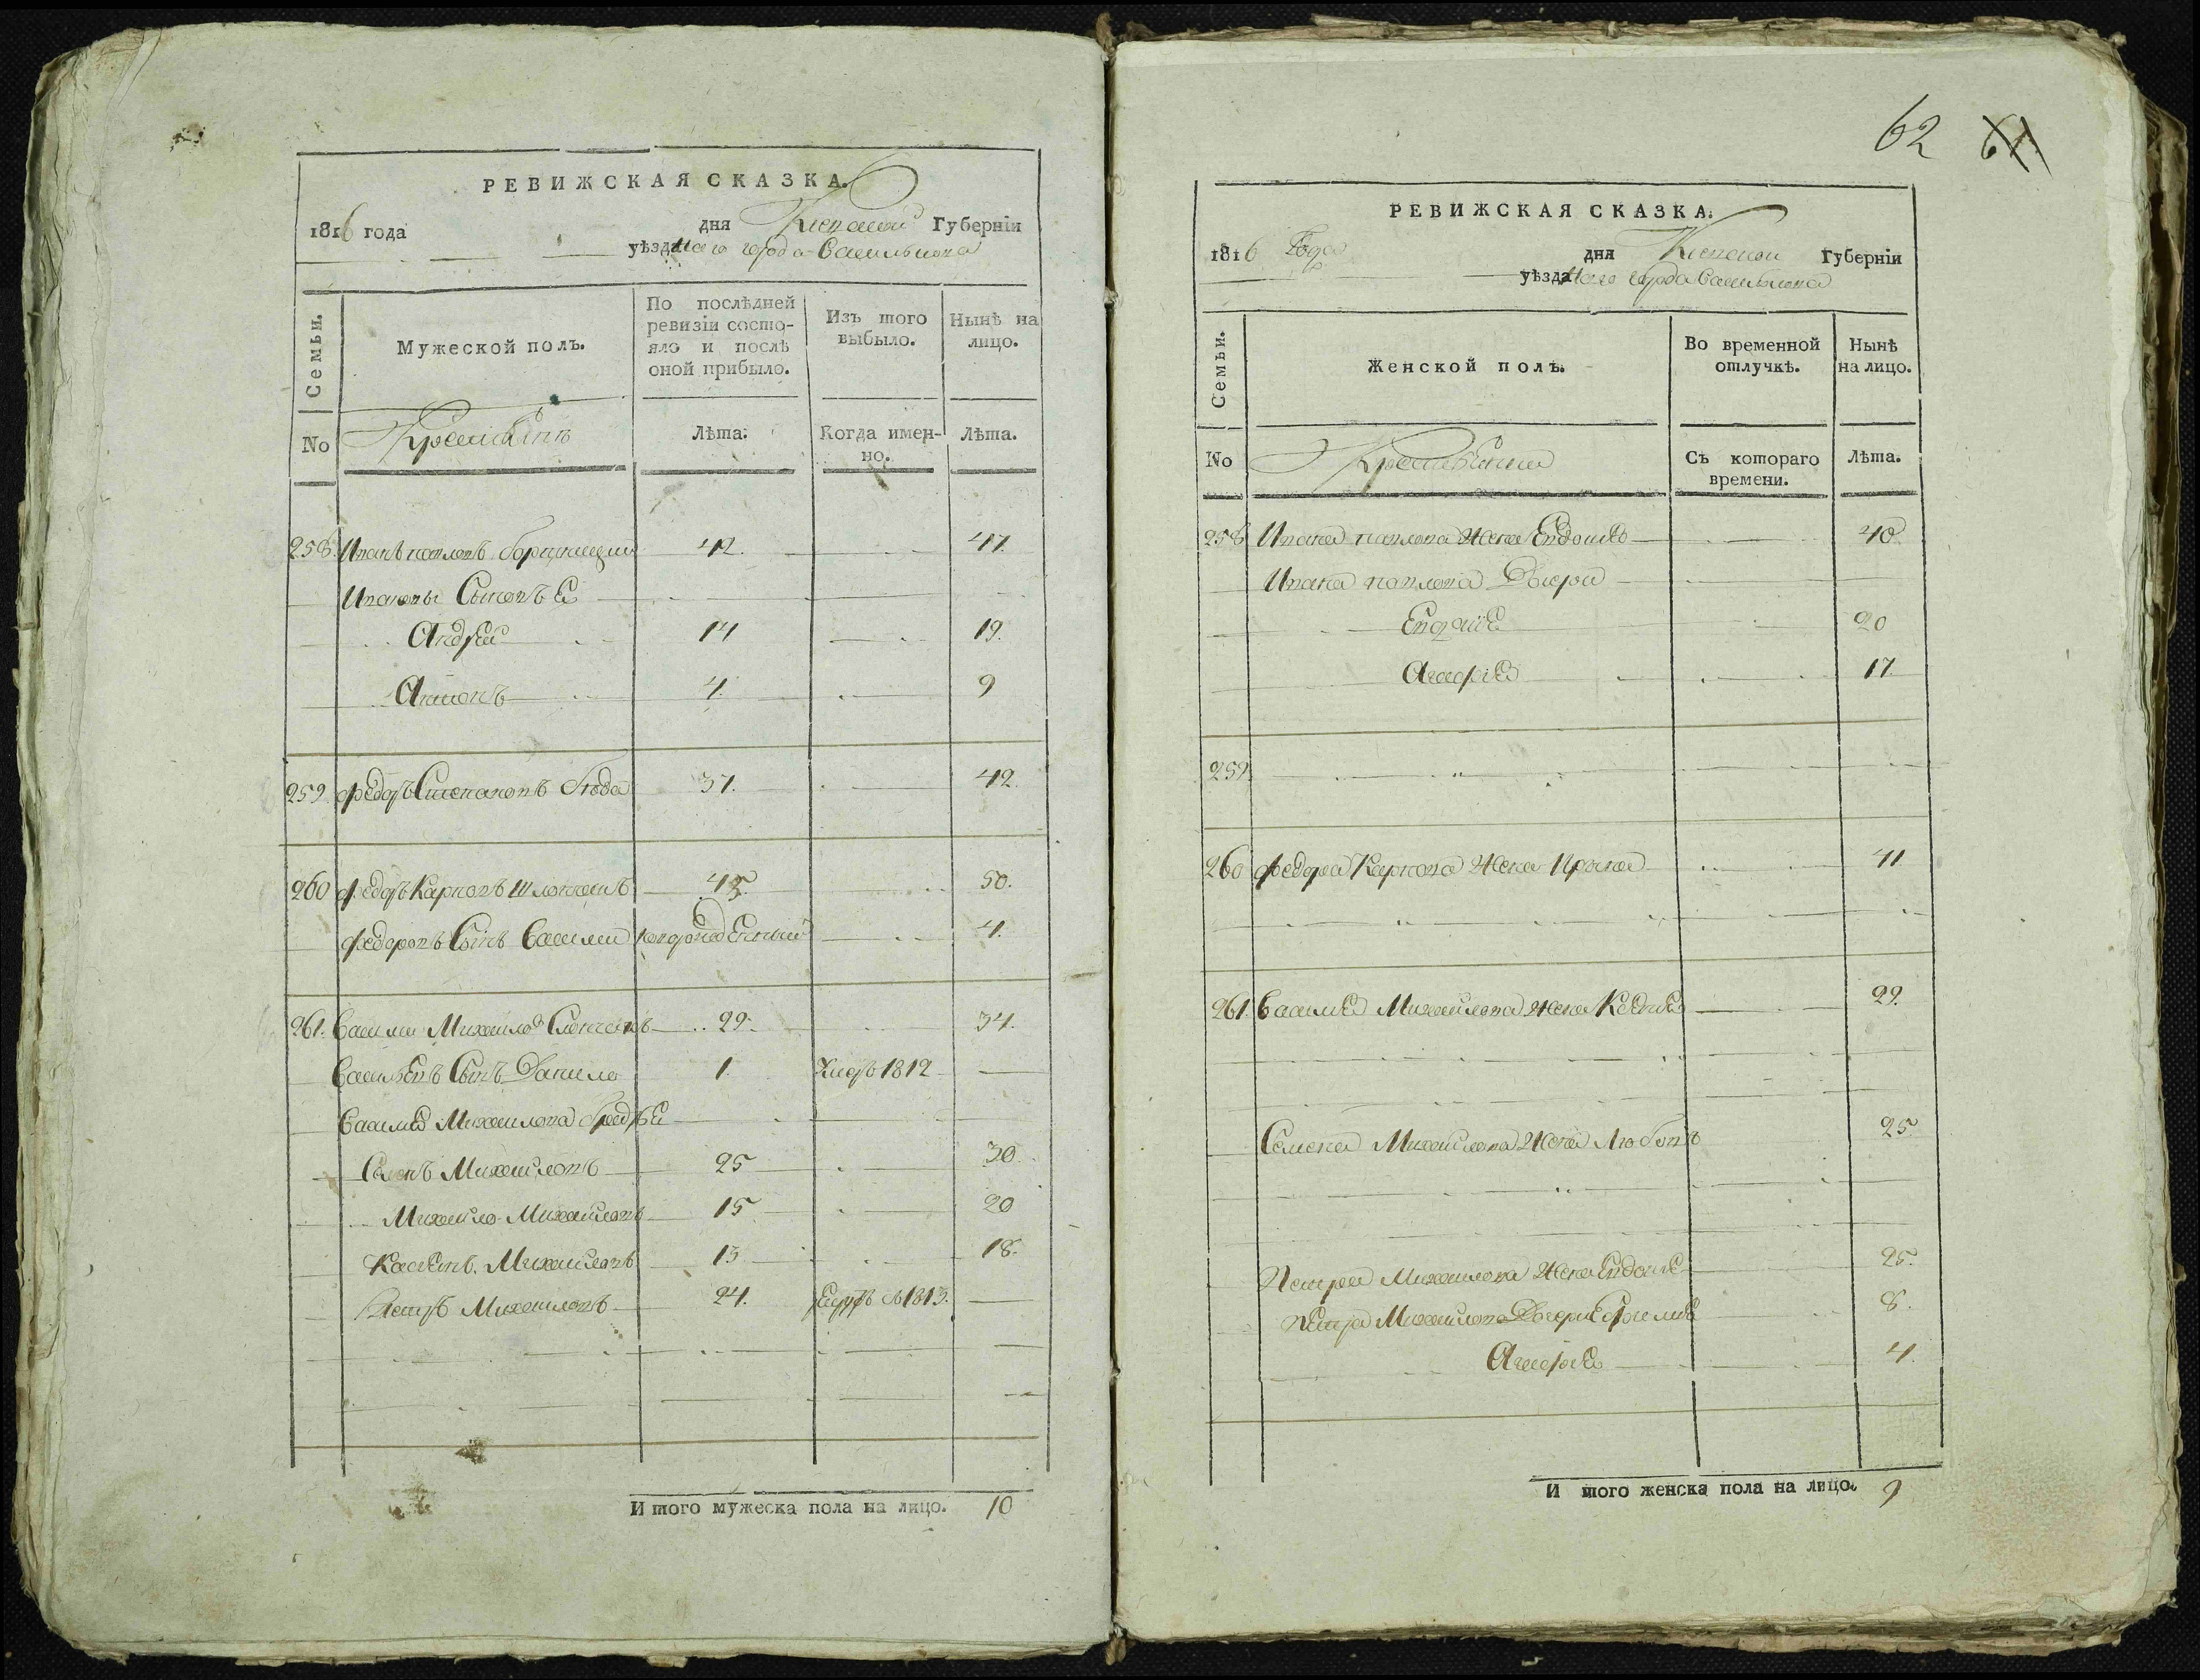 РЕВИЖСКАЯ СКАЗКА.
1816 года дня Киевской Губерніи
уѣзда города Василькова
Семьи.
Мужеской полъ.
По послѣдней ревизіи состояло и послѣ оной прибыло.
Изъ того выбыло.
Нынѣ на лицо.
No
Лѣта.
Когда именно.
Лѣта.
258. Иванъ Павловъ 42. 47.
Ивановы Сыновья
Андрей 14 19.
Антонъ 4. 9
259 Федоръ Степановъ 37. 42.
260 Федоръ Карповъ 45. 50.
Федоровъ Сынъ Василій новорожденный 4.
261. Василій Михайловъ 29. 34.
Васильевъ Сынъ Данило 1. 1812
Василія Михайлова братья
Семенъ Михайловъ 25 30.
Михайло Михайловъ 15 20
Михайловъ 13 18.
Петръ Михайловъ 24. 1813.
Итого мужеска пола на лицо. 10
62 61
РЕВИЖСКАЯ СКАЗКА.
1816 Года дня Киевской Губерніи
уѣзда города Василькова
Семьи.
Женской полъ.
Во временной отлучкѣ.
Нынѣ на лицо.
No
Съ котораго времени.
Лѣта.
258 Ивана Павлова жена 40
Ивана Павлова Дочери
20
Агафія 17.
259.
260 Федора Карпова жена Ирина 41
261. Василія Михайлова жена Ксенія 29.
Семена Михайлова жена Любовь 25.
Петра Михайлова жена 25.
Петра Михайлова Дочери 8.
Агафія 4.
Итого женска пола на лицо. 9